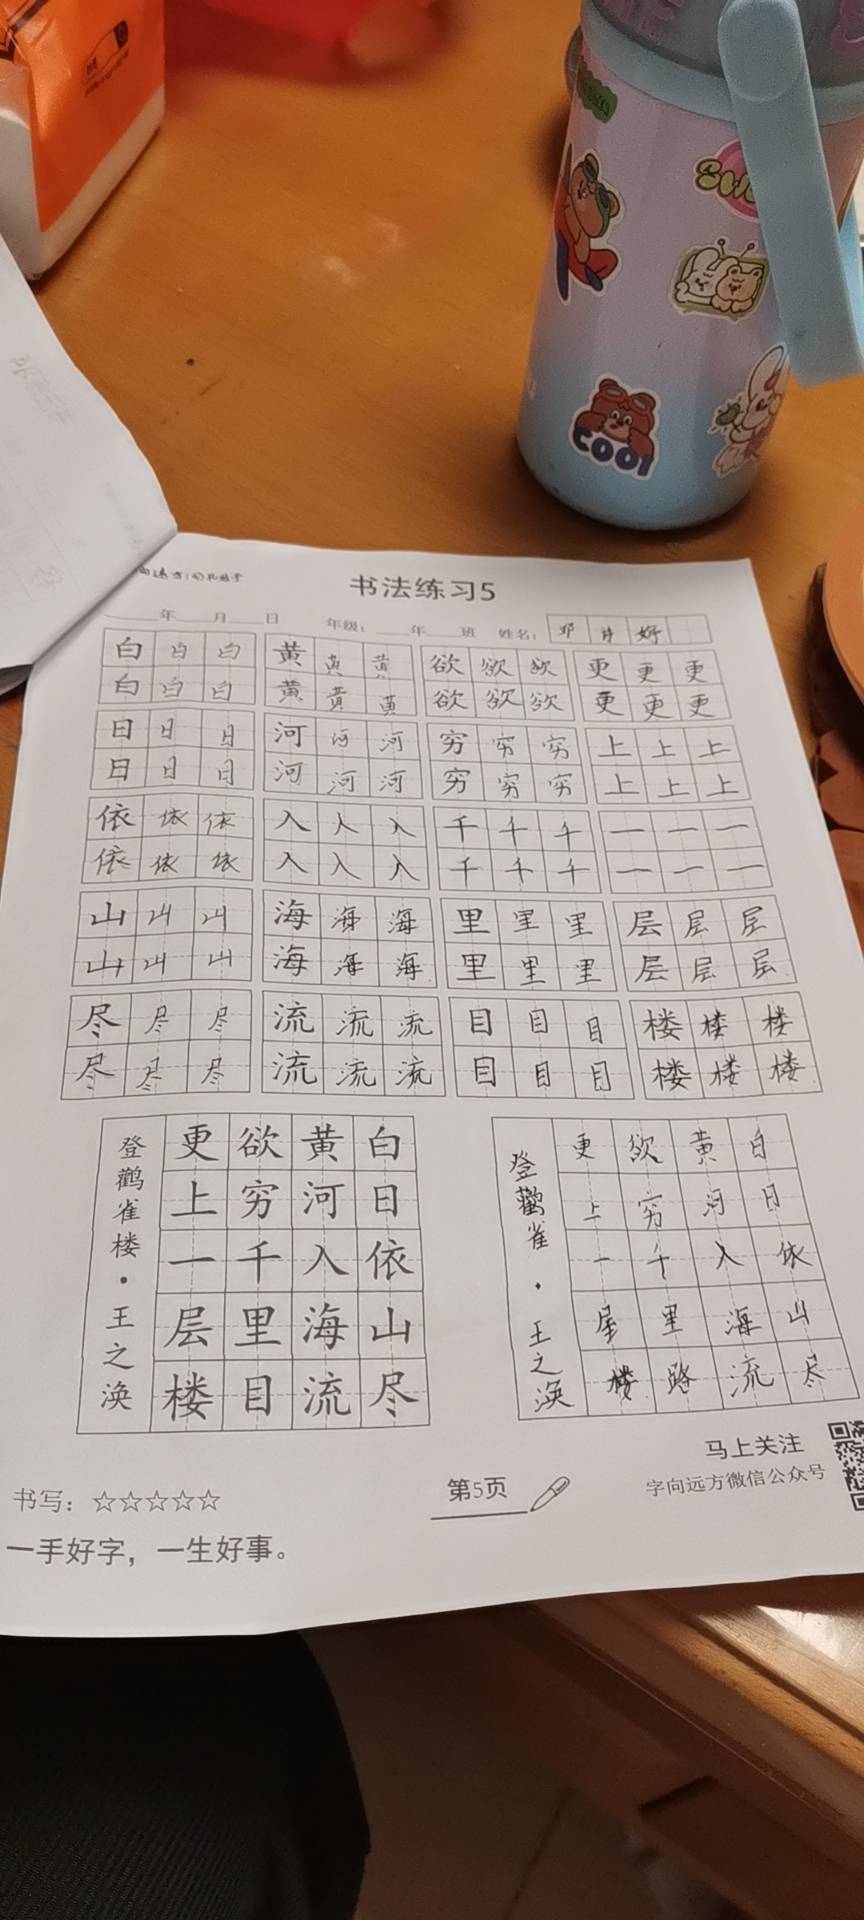 COOL
书法练习5
年 月 日 年级： 年 班 姓名： 邓 好
白 白 白 黄 黄 黄 欲 欲 欲 更 更 更
白 白 白 黄 黄 黄 欲 欲 欲 更 更 更
日 日 日 河 河 河 穷 穷 穷 上 上 上
日 日 日 河 河 河 穷 穷 穷 上 上 上
依 依 依 入 入 入 千 千 千 一 一 一
依 依 依 入 入 入 千 千 千 一 一 一
山 山 山 海 海 海 里 里 里 层 层 层
山 山 山 海 海 海 里 里 里 层 层 层
尽 尽 尽 流 流 流 目 目 目 楼 楼 楼
尽 尽 尽 流 流 流 目 目 目 楼 楼 楼
白日依山尽
黄河入海流
欲穷千里目
更上一层楼
登鹳雀楼·王之涣
白日依山尽
黄河入海流
欲穷千里路
更上一层楼
登鹳雀·王之涣
书写：☆☆☆☆☆
第5页
马上关注
字向远方微信公众号
一手好字，一生好事。